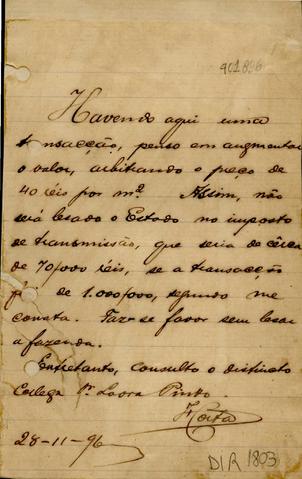 901896
Havendo aqui uma
transacção, penso em augmentar
o valor, arbitrando o preço de
40 réis por m². Assim, não
será lesado o Estado no imposto
de transmissão, que seria de cêrca
de 70/000 réis, se a transacção
foi de 1.000/000, segundo me
consta. Faz-se favor sem lesar
a fazenda.
Entretanto, consulto o distincto
Collega Dr. Pinto.
28-11-96
DIR 1803